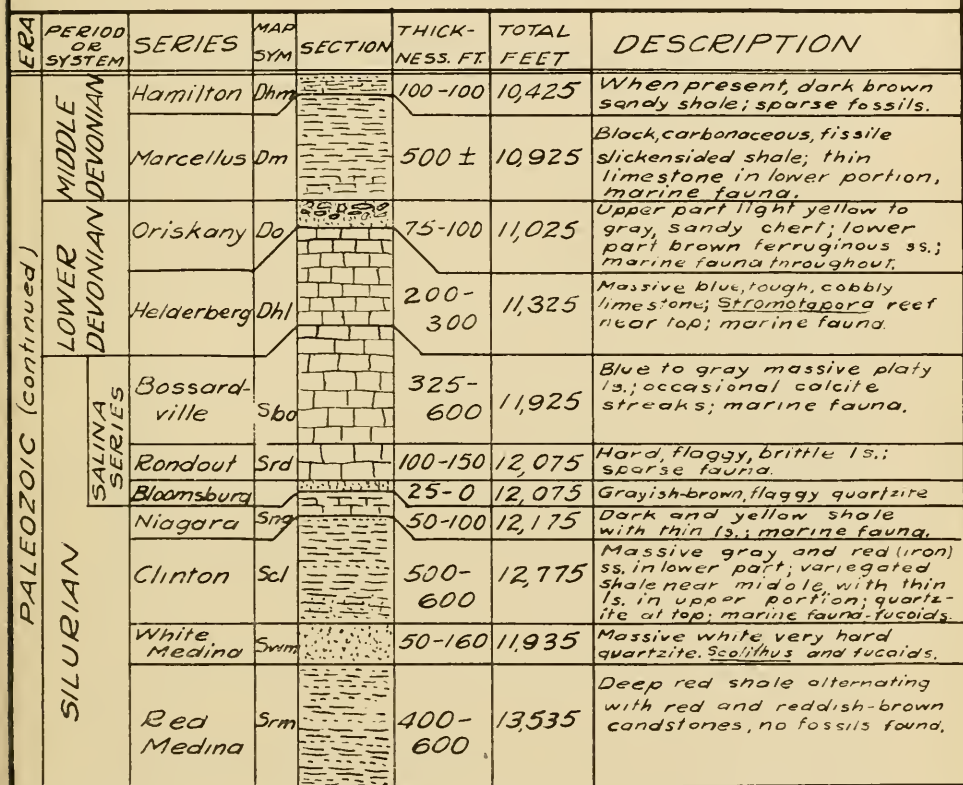 ERA
PERIOD
OR
SYSTEM
SERIES
MAP
SYM
SECTION
THICK-
NESS. FT.
TOTAL
FEET
DESCRIPTION
PALEOZOIC (continued)
MIDDLE
DEVONIAN
Hamilton
Dhm
100-100
10,425
When present, dark brown
sandy shale; sparse fossils.
Marcellus
Dm
500 ±
10,925
Black, carbonaceous, fissile
slickensided shale; thin
limestone in lower portion,
marine fauna.
LOWER
DEVONIAN
Oriskany
Do
75-100
11,025
Upper part light yellow to
gray, sandy chert; lower
part brown ferruginous ss.;
marine fauna throughout.
Helderberg
Dhl
200-
300
11,325
Massive blue, tough, cobbly
limestone; Stromotapora reef
near top; marine fauna.
SILURIAN
SALINA
SERIES
Bossard-
ville
Sbo
325-
600
11,925
Blue to gray massive platy
ls.; occasional calcite
streaks; marine fauna.
Rondout
Srd
100-150
12,075
Hard, flaggy, brittle ls.;
sparse fauna.
Bloomsburg
25-0
12,075
Grayish-brown, flaggy quartzite
Niagara
Sng
50-100
12,175
Dark and yellow shale
with thin ls.; marine fauna.
Clinton
Scl
500-
600
12,775
Massive gray and red (iron)
ss. in lower part; variegated
shale near midole, with thin
ls. in upper portion; quartz-
ite at top; marine fauna-fucoids.
White
Medina
Swm
50-160
11,935
Massive white very hard
quartzite. Scolithus and fucoids.
Red
Medina
Srm
400-
600
13,535
Deep red shale alternating
with red and reddish-brown
candstones, no fossils found.